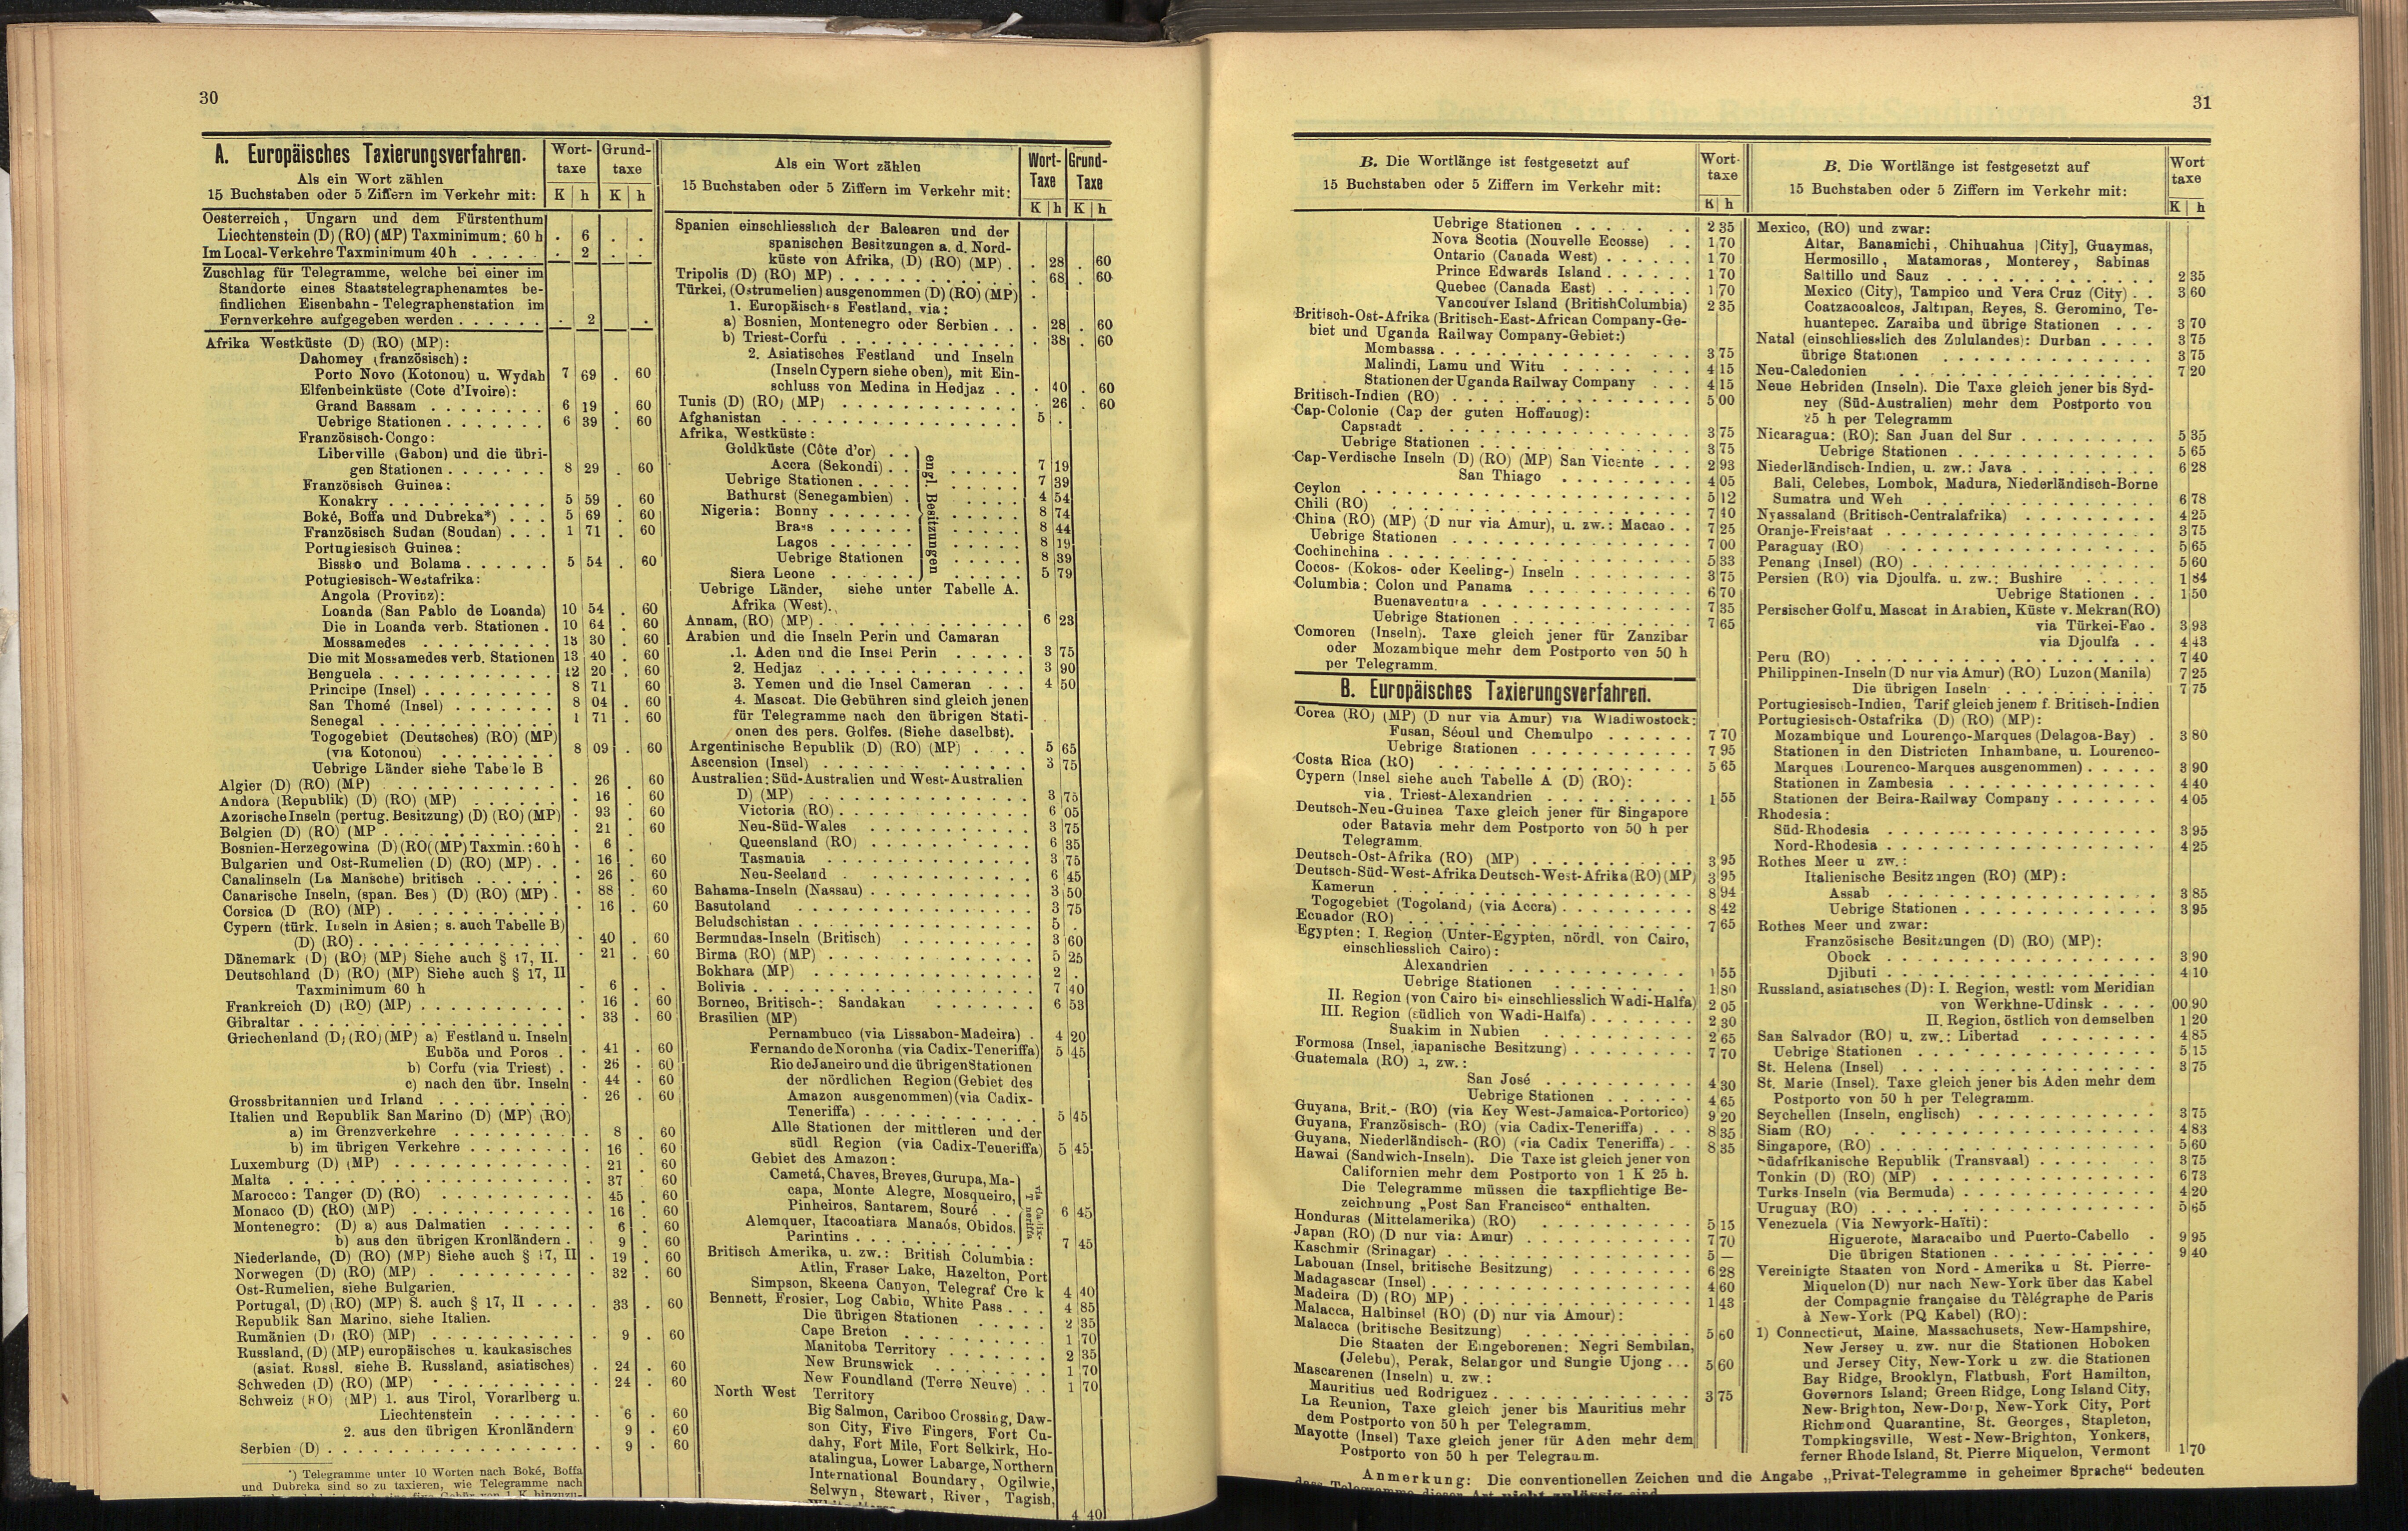 30
A. Europäisches Taxierungsverfahren.
Als ein Wort zählen
15 Buchstaben oder 5 Ziffern im Verkehr mit:
Wort-taxe K h Grund-taxe K h
Oesterreich, Ungarn und dem Fürstenthum
Liechtenstein (D) (RO) (MP) Taxminimum: 60 h . 6 . .
Im Local-Verkehre Taxminimum 40 h . . . . . . 2 . .
Zuschlag für Telegramme, welche bei einer im
Standorte eines Staatstelegraphenamtes be-
findlichen Eisenbahn-Telegraphenstation im
Fernverkehre aufgegeben werden . . . . . . . 2 .
Afrika Westküste (D) (RO) (MP):
Dahomey (französisch):
Porto Novo (Kotonou) u. Wydah 7 69 . 60
Elfenbeinküste (Cote d'Ivoire):
Grand Bassam . . . . . . . . 6 19 . 60
Uebrige Stationen . . . . . . . 6 39 . 60
Französisch-Congo:
Liberville (Gabon) und die übri-
gen Stationen . . . . . . . 8 29 . 60
Französisch Guinea:
Konakry . . . . . . . . . . . 5 59 . 60
Boké, Boffa und Dubreka*) . . . 5 69 . 60
Französisch Sudan (Soudan) . . . 1 71 . 60
Portugiesisch Guinea:
Bissko und Bolama . . . . . . 5 54 . 60
Potugiesisch-Westafrika:
Angola (Provinz):
Loanda (San Pablo de Loanda) 10 54 . 60
Die in Loanda verb. Stationen . 10 64 . 60
Mossamedes . . . . . . . . . 13 30 . 60
Die mit Mossamedes verb. Stationen 13 40 . 60
Benguela . . . . . . . . . . . . 12 20 . 60
Principe (Insel) . . . . . . . . . 8 71 60
San Thomé (Insel) . . . . . . . 8 04 . 60
Senegal . . . . . . . . . . . . 1 71 . 60
Togogebiet (Deutsches) (RO) (MP)
(via Kotonou) . . . . . . . 8 09 . 60
Uebrige Länder siehe Tabe le B
Algier (D) (RO) (MP) . . . . . . . . . . . . 26 60
Andora (Republik) (D) (RO) (MP) . . . . . . . 16 . 60
Azorische Inseln (pertug. Besitzung) (D) (RO) (MP) . 93 . 60
Belgien (D) (RO) (MP . . . . . . . . . . . . . 21 . 60
Bosnien-Herzegowina (D) (RO((MP) Taxmin.: 60 h . 6 .
Bulgarien und Ost-Rumelien (D) (RO) (MP) . . . 16 . 60
Canalinseln (La Mansche) britisch . . . . . . . 26 . 60
Canarische Inseln, (span. Bes) (D) (RO) (MP) . . 88 . 60
Corsica (D (RO) (MP) . . . . . . . . . . . . 16 . 60
Cypern (türk. Inseln in Asien; s. auch Tabelle B)
(D) (RO) . . . . . . . . . . . . . . . 40 . 60
Dänemark (D) (RO) (MP) Siehe auch § 17, II. . 21 . 60
Deutschland (D) (RO) (MP) Siehe auch § 17, II
Taxminimum 60 h . 6 . .
Frankreich (D) (RO) (MP) . . . . . . . . . . . 16 . 60
Gibraltar . . . . . . . . . . . . . . . . . . 33 . 60
Griechenland (D) (RO) (MP) a) Festland u. Inseln
Euböa und Poros . . 41 . 60
b) Corfu (via Triest) . . 26 . 60
c) nach den übr. Inseln . 44 . 60
Grossbritannien und Irland . . . . . . . . . . 26 . 60
Italien und Republik San Marino (D) (MP) (RO)
a) im Grenzverkehre . . . . . . . . . 8 . 60
b) im übrigen Verkehre . . . . . . . . 16 . 60
Luxemburg (D) (MP) . . . . . . . . . . . . . 21 . 60
Malta . . . . . . . . . . . . . . . . . . . 37 60
Marocco: Tanger (D) (RO) . . . . . . . . . . 45 . 60
Monaco (D) (RO) (MP) . . . . . . . . . . . . 16 . 60
Montenegro: (D) a) aus Dalmatien . . . . . . 6 . 60
b) aus den übrigen Kronländern . . 9 . 60
Niederlande, (D) (RO) (MP) Siehe auch § 17, II . 19 . 60
Norwegen (D) (RO) (MP) . . . . . . . . . . . 32 . 60
Ost-Rumelien, siehe Bulgarien.
Portugal, (D) (RO) (MP) S. auch § 17, II . . . . . 33 . 60
Republik San Marino, siehe Italien.
Rumänien (D) (RO) (MP) . . . . . . . . . . . 9 . 60
Russland, (D) (MP) europäisches u. kaukasisches
(asiat. Russl. siehe B. Russland, asiatisches) . 24 . 60
Schweden (D) (RO) (MP) . . . . . . . . . . . 24 . 60
Schweiz (RO) (MP) 1. aus Tirol, Vorarlberg u.
Liechtenstein . . . . . . . 6 . 60
2. aus den übrigen Kronländern . 9 . 60
Serbien (D) . . . . . . . . . . . . . . . . . . 9 . 60
*) Telegramme unter 10 Worten nach Boké, Boffa
und Dubreka sind so zu taxieren, wie Telegramme nach
Als ein Wort zählen
15 Buchstaben oder 5 Ziffern im Verkehr mit:
Wort-Taxe K h Grund-Taxe K h
Spanien einschliesslich der Balearen und der
spanischen Besitzungen a. d. Nord-
küste von Afrika, (D) (RO) (MP) . . 28 . 60
Tripolis (D) (RO) MP) . . . . . . . . . . . . . 68 . 60
Türkei, (Ostrumelien) ausgenommen (D) (RO) (MP) .
1. Europäisch s Festland, via:
a) Bosnien, Montenegro oder Serbien . . . 28 . 60
b) Triest-Corfu . . . . . . . . . . . . . 38 . 60
2. Asiatisches Festland und Inseln
(Inseln Cypern siehe oben), mit Ein-
schluss von Medina in Hedjaz . . . 40 . 60
Tunis (D) (RO) (MP) . . . . . . . . . . . . . 26 . 60
Afghanistan . . . . . . . . . . . . . . . . 5 .
Afrika, Westküste:
Goldküste (Côte d'or) . .
Accra (Sekondi) . . . . . . . 7 19
Uebrige Stationen . . . . . . . . . 7 39
Bathurst (Senegambien) . . . . . . 4 54
Nigeria: Bonny . . . . . . . . . . . 8 74
Brass . . . . . . . . . . . 8 44
Lagos . . . . . . . . . . . 8 19
Uebrige Stationen . . . . . 8 39
Siera Leone . . . . . . . . . . . 5 79
engl. Besitzungen
Uebrige Länder, siehe unter Tabelle A.
Afrika (West).
Annam, (RO) (MP) . . . . . . . . . . . . . 6 23
Arabien und die Inseln Perin und Camaran
1. Aden und die Insel Perin . . . . . 3 75
2. Hedjaz . . . . . . . . . . . . . 3 90
3. Yemen und die Insel Cameran . . . 4 50
4. Mascat. Die Gebühren sind gleich jenen
für Telegramme nach den übrigen Stati-
onen des pers. Golfes. (Siehe daselbst).
Argentinische Republik (D) (RO) (MP) . . . . 5 65
Ascension (Insel) . . . . . . . . . . . . . 3 75
Australien: Süd-Australien und West-Australien
D) (MP) . . . . . . . . . . . . . . . 3 75
Victoria (RO) . . . . . . . . . . . . . 6 05
Neu-Süd-Wales . . . . . . . . . . . 3 75
Queensland (RO) . . . . . . . . . . . 6 35
Tasmania . . . . . . . . . . . . . . 3 75
Neu-Seeland . . . . . . . . . . . . . 6 45
Bahama-Inseln (Nassau) . . . . . . . . . . . 3 50
Basutoland . . . . . . . . . . . . . . . . 3 75
Beludschistan . . . . . . . . . . . . . . . . 5 .
Bermudas-Inseln (Britisch) . . . . . . . . . 3 60
Birma (RO) (MP) . . . . . . . . . . . . . . 5 25
Bokhara (MP) . . . . . . . . . . . . . . . 2 .
Bolivia . . . . . . . . . . . . . . . . . . 7 40
Borneo, Britisch-: Sandakan . . . . . . . 6 53
Brasilien (MP)
Pernambuco (via Lissabon-Madeira) . 4 20
Fernando de Noronha (via Cadix-Teneriffa) 5 45
Rio de Janeiro und die übrigen Stationen
der nördlichen Region (Gebiet des
Amazon ausgenommen) (via Cadix-
Teneriffa) . . . . . . . . . . . 5 45
Alle Stationen der mittleren und der
südl. Region (via Cadix-Teneriffa) 5 45
Gebiet des Amazon:
Cametá, Chaves, Breves, Gurupa, Ma-
capa, Monte Alegre, Mosqueiro,
Pinheiros, Santarem, Souré . . . 6 45
Alemquer, Itacoatiara Manaós, Obidos,
Parintins . . . . . . . . . . . 7 45
Britisch Amerika, u. zw.: British Columbia:
Atlin, Fraser Lake, Hazelton, Port
Simpson, Skeena Canyon, Telegraf Cre k 4 40
Bennett, Frosier, Log Cabin, White Pass . . . 4 85
Die übrigen Stationen . . . . . 2 35
Cape Breton . . . . . . . . . . 1 70
Manitoba Territory . . . . . . . 2 35
New Brunswick . . . . . . . . 1 70
New Foundland (Terre Neuve) . . 1 70
North West Territory
Big Salmon, Cariboo Crossing, Daw-
son City, Five Fingers, Fort Cu-
dahy, Fort Mile, Fort Selkirk, Ho-
atalingua, Lower Labarge, Northern
International Boundary, Ogilwie,
Selwyn, Stewart, River, Tagish,
4 40
31
B. Die Wortlänge ist festgesetzt auf
15 Buchstaben oder 5 Ziffern im Verkehr mit:
Wort-taxe K h
Uebrige Stationen . . . . . . . 2 35
Nova Scotia (Nouvelle Ecosse) . . 1 70
Ontario (Canada West) . . . . . . 1 70
Prince Edwards Island . . . . . . 1 70
Quebec (Canada East) . . . . . . 1 70
Vancouver Island (British Columbia) 2 35
Britisch-Ost-Afrika (Britisch-East-African Company-Ge-
biet und Uganda Railway Company-Gebiet:)
Mombassa . . . . . . . . . . . . . . . 3 75
Malindi, Lamu und Witu . . . . . . . . 4 15
Stationen der Uganda Railway Company . . . 4 15
Britisch-Indien (RO) . . . . . . . . . . . . . . 5 00
Cap-Colonie (Cap der guten Hoffnung):
Capstadt . . . . . . . . . . . . . . . . 3 75
Uebrige Stationen . . . . . . . . . . . . 3 75
Cap-Verdische Inseln (D) (RO) (MP) San Vicente . . . 2 93
San Thiago . . . . . . . . 4 05
Ceylon . . . . . . . . . . . . . . . . . . . 5 12
Chili (RO) . . . . . . . . . . . . . . . . . . 7 40
China (RO) (MP) (D nur via Amur), u. zw.: Macao . . 7 25
Uebrige Stationen . . . . . . . . . . . . . 7 00
Cochinchina . . . . . . . . . . . . . . . . . 5 33
Cocos- (Kokos- oder Keeling-) Inseln . . . . . . . 3 75
Columbia: Colon und Panama . . . . . . . . . . 6 70
Buenaventura . . . . . . . . . . . . . 7 35
Uebrige Stationen . . . . . . . . . . . . 7 65
Comoren (Inseln). Taxe gleich jener für Zanzibar
oder Mozambique mehr dem Postporto von 50 h
per Telegramm.
B. Europäisches Taxierungsverfahren.
Corea (RO) (MP) (D nur via Amur) via Wladiwostock:
Fusan, Séoul und Chemulpo . . . . . . 7 70
Uebrige Stationen . . . . . . . . . . . 7 95
Costa Rica (RO) . . . . . . . . . . . . . . . 5 65
Cypern (Insel siehe auch Tabelle A (D) (RO):
via. Triest-Alexandrien . . . . . . . . . . 1 55
Deutsch-Neu-Guinea Taxe gleich jener für Singapore
oder Batavia mehr dem Postporto von 50 h per
Telegramm.
Deutsch-Ost-Afrika (RO) (MP) . . . . . . . . . . 3 95
Deutsch-Süd-West-Afrika Deutsch-West-Afrika (RO) (MP) 3 95
Kamerun . . . . . . . . . . . . . . . . . 8 94
Togogebiet (Togoland) (via Accra) . . . . . . . . 8 42
Ecuador (RO) . . . . . . . . . . . . . . . . 7 65
Egypten: I. Region (Unter-Egypten, nördl. von Cairo,
einschliesslich Cairo):
Alexandrien . . . . . . . . . . . . 1 55
Uebrige Stationen . . . . . . . . . . 1 80
II. Region (von Cairo bis einschliesslich Wadi-Halfa) 2 05
III. Region (südlich von Wadi-Halfa) . . . . . . . 2 30
Suakim in Nubien . . . . . . . . . . 2 65
Formosa (Insel, japanische Besitzung) . . . . . . . . 7 70
Guatemala (RO) u, zw.:
San José . . . . . . . . . . 4 30
Uebrige Stationen . . . . . . 4 65
Guyana, Brit.- (RO) (via Key West-Jamaica-Portorico) 9 20
Guyana, Französisch- (RO) (via Cadix-Teneriffa) . . . 8 35
Guyana, Niederländisch- (RO) (via Cadix Teneriffa) . . 8 35
Hawai (Sandwich-Inseln). Die Taxe ist gleich jener von
Californien mehr dem Postporto von 1 K 25 h.
Die Telegramme müssen die taxpflichtige Be-
zeichnung „Post San Francisco" enthalten.
Honduras (Mittelamerika) (RO) . . . . . . . . . 5 15
Japan (RO) (D nur via: Amur) . . . . . . . . . . 7 70
Kaschmir (Srinagar) . . . . . . . . . . . . . . 5 —
Labouan (Insel, britische Besitzung) . . . . . . . . 6 28
Madagascar (Insel) . . . . . . . . . . . . . . . 4 60
Madeira (D) (RO) MP) . . . . . . . . . . . . . 1 43
Malacca, Halbinsel (RO) (D) nur via Amour):
Malacca (britische Besitzung) . . . . . . . . . . 5 60
Die Staaten der Eingeborenen: Negri Sembilan,
(Jelebu), Perak, Selangor und Sungie Ujong . . . 5 60
Mascarenen (Inseln) u. zw.:
Mauritius ued Rodriguez . . . . . . . . . . . . 3 75
La Reunion, Taxe gleich jener bis Mauritius mehr
dem Postporto von 50 h per Telegramm.
Mayotte (Insel) Taxe gleich jener für Aden mehr dem
Postporto von 50 h per Telegramm.
B. Die Wortlänge ist festgesetzt auf
15 Buchstaben oder 5 Ziffern im Verkehr mit:
Wort taxe K h
Mexico, (RO) und zwar:
Altar, Banamichi, Chihuahua [City], Guaymas,
Hermosillo, Matamoras, Monterey, Sabinas
Saltillo und Sauz . . . . . . . . . . . . . 2 35
Mexico (City), Tampico und Vera Cruz (City) . . 3 60
Coatzacoalcos, Jaltipan, Reyes, S. Geromino, Te-
huantepec. Zaraiba und übrige Stationen . . . 3 70
Natal (einschliesslich des Zululandes): Durban . . . . 3 75
übrige Stationen . . . . . . . . . . . . . . 3 75
Neu-Caledonien . . . . . . . . . . . . . . . . 7 20
Neue Hebriden (Inseln). Die Taxe gleich jener bis Syd-
ney (Süd-Australien) mehr dem Postporto von
25 h per Telegramm
Nicaragua: (RO): San Juan del Sur . . . . . . . . . 5 35
Uebrige Stationen . . . . . . . . . . . . 5 65
Niederländisch-Indien, u. zw.: Java . . . . . . . . . 6 28
Bali, Celebes, Lombok, Madura, Niederländisch-Borne
Sumatra und Weh . . . . . . . . . . . . . 6 78
Nyassaland (Britisch-Centralafrika) . . . . . . . . . 4 25
Oranje-Freistaat . . . . . . . . . . . . . . . . 3 75
Paraguay (RO) . . . . . . . . . . . . . . . . 5 65
Penang (Insel) (RO) . . . . . . . . . . . . . . . 5 60
Persien (RO) via Djoulfa. u. zw.: Bushire . . . . . 1 84
Uebrige Stationen . . 1 50
Persischer Golf u. Mascat in Arabien, Küste v. Mekran (RO)
via Türkei-Fao . 3 93
via Djoulfa . . 4 43
Peru (RO) . . . . . . . . . . . . . . . . . . 7 40
Philippinen-Inseln (D nur via Amur) (RO) Luzon (Manila) 7 25
Die übrigen Inseln . . . . . . . . . . 7 75
Portugiesisch-Indien, Tarif gleich jenem f. Britisch-Indien
Portugiesisch-Ostafrika (D) (RO) (MP):
Mozambique und Lourenço-Marques (Delagoa-Bay) . 3 80
Stationen in den Districten Inhambane, u. Lourenco-
Marques (Lourenco-Marques ausgenommen) . . . . . 3 90
Stationen in Zambesia . . . . . . . . . . . . . 4 40
Stationen der Beira-Railway Company . . . . . . . 4 05
Rhodesia:
Süd-Rhodesia . . . . . . . . . . . . . . . . 3 95
Nord-Rhodesia . . . . . . . . . . . . . . . . 4 25
Rothes Meer u zw.:
Italienische Besitzungen (RO) (MP):
Assab . . . . . . . . . . . . . . . . 3 85
Uebrige Stationen . . . . . . . . . . . . 3 95
Rothes Meer und zwar:
Französische Besitzungen (D) (RO) (MP):
Obock . . . . . . . . . . . . . . . . . 3 90
Djibuti . . . . . . . . . . . . . . . . . 4 10
Russland, asiatisches (D): I. Region, westl: vom Meridian
von Werkhne-Udinsk . . . . 00 90
II. Region, östlich von demselben 1 20
San Salvador (RO) u. zw.: Libertad . . . . . . . 4 85
Uebrige Stationen . . . . . . . . . . . . . . 5 15
St. Helena (Insel) . . . . . . . . . . . . . . . . 3 75
St. Marie (Insel). Taxe gleich jener bis Aden mehr dem
Postporto von 50 h per Telegramm.
Seychellen (Inseln, englisch) . . . . . . . . . . . 3 75
Siam (RO) . . . . . . . . . . . . . . . . . . 4 83
Singapore, (RO) . . . . . . . . . . . . . . . . 5 60
Südafrikanische Republik (Transvaal) . . . . . . . 3 75
Tonkin (D) (RO) (MP) . . . . . . . . . . . . . 6 73
Turks Inseln (via Bermuda) . . . . . . . . . . . . 4 20
Uruguay (RO) . . . . . . . . . . . . . . . . . 5 65
Venezuela (Via Newyork-Haïti):
Higuerote, Maracaibo und Puerto-Cabello . 9 95
Die übrigen Stationen . . . . . . . . . . . 9 40
Vereinigte Staaten von Nord-Amerika u St. Pierre-
Miquelon (D) nur nach New-York über das Kabel
der Compagnie française du Tèlégraphe de Paris
à New-York (PQ Kabel) (RO):
1) Connecticut, Maine, Massachusets, New-Hampshire,
New Jersey u. zw. nur die Stationen Hoboken
und Jersey City, New-York u zw. die Stationen
Bay Ridge, Brooklyn, Flatbush, Fort Hamilton,
Governors Island; Green Ridge, Long Island City,
New-Brighton, New-Dorp, New-York City, Port
Richmond Quarantine, St. Georges, Stapleton,
Tompkingsville, West-New-Brighton, Yonkers,
ferner Rhode Island, St. Pierre Miquelon, Vermont 1 70
Anmerkung: Die conventionellen Zeichen und die Angabe „Privat-Telegramme in geheimer Sprache" bedeuten